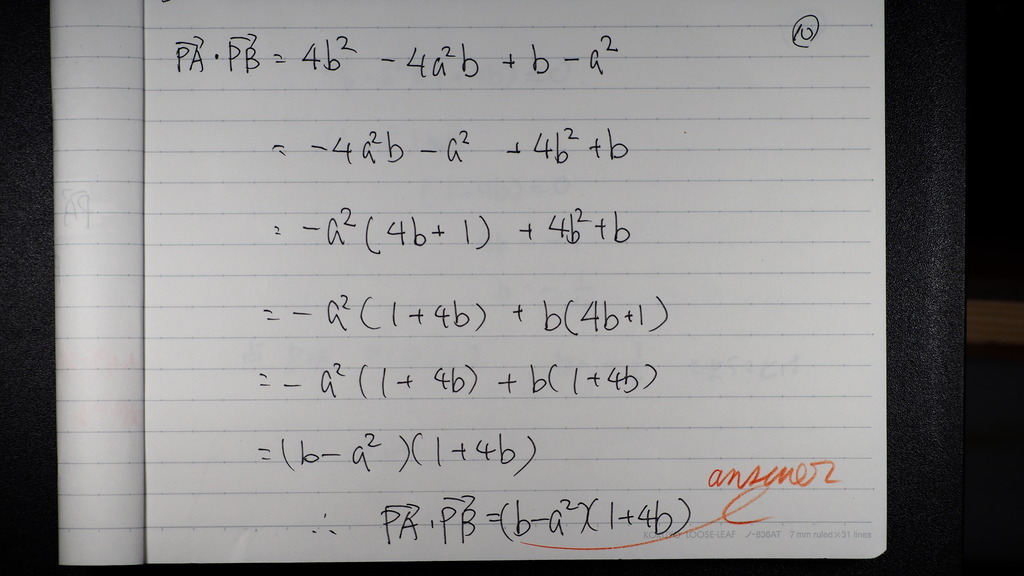 ⑩
PA⃗・PB⃗ = 4b² - 4a²b + b - a²
= -4a²b - a² + 4b² + b
= -a²(4b+1) + 4b²+b
= - a²(1+4b) + b(4b+1)
= - a²(1+4b) + b(1+4b)
= (b-a²)(1+4b)
answer
∴ PA⃗・PB⃗ = (b-a²)(1+4b)
LOOSE-LEAF ノ-836AT 7 mm ruled×31 lines